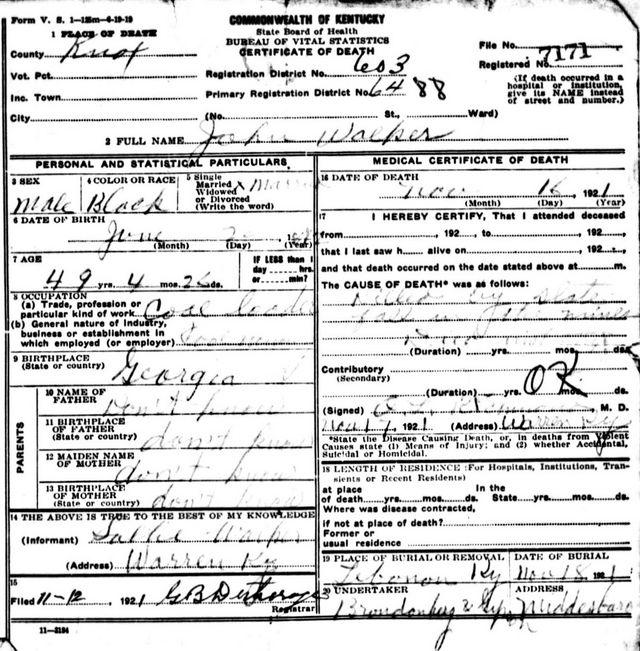 Form V. S. 1-12m-6-19-19
COMMONWEALTH OF KENTUCKY
State Board of Health
BUREAU OF VITAL STATISTICS
CERTIFICATE OF DEATH
1 PLACE OF DEATH
County Knox
Vot. Pct.
Inc. Town
City
Registration District No. 603
Primary Registration District No. 6488
(No. St., Ward)
File No.
Registered No. 7171
(If death occurred in a
hospital or institution,
give its NAME instead
of street and number.)
2 FULL NAME John Walker
PERSONAL AND STATISTICAL PARTICULARS
3 SEX
Male
4 COLOR OR RACE
Black
5 Single
Married x
Widowed
or Divorced
(Write the word)
6 DATE OF BIRTH
June
(Month) (Day) (Year)
7 AGE
49 yrs. 4 mos. 26 ds.
IF LESS than 1
day hrs.
or min?
8 OCCUPATION
(a) Trade, profession or
particular kind of work Coal loader
(b) General nature of industry,
business or establishment in
which employed (or employer)
9 BIRTHPLACE
(State or country)
Georgia
PARENTS
10 NAME OF
FATHER Don't know
11 BIRTHPLACE
OF FATHER
(State or country) don't know
12 MAIDEN NAME
OF MOTHER don't know
13 BIRTHPLACE
OF MOTHER
(State or country) don't know
14 THE ABOVE IS TRUE TO THE BEST OF MY KNOWLEDGE
(Informant) Sallie Walker
(Address) Warren Ky
15
Filed 11-12, 1921 G B
Registrar
11-3184
MEDICAL CERTIFICATE OF DEATH
16 DATE OF DEATH
Nov 16, 1921
(Month) (Day) (Year)
17 I HEREBY CERTIFY, That I attended deceased
from , 192 to , 192
that I last saw h alive on , 192
and that death occurred on the date stated above at m.
The CAUSE OF DEATH* was as follows:
Killed by slate
fall in the mines
(Duration) yrs. mos. ds.
Contributory
(Secondary)
(Duration) yrs. mos. ds.
OK
(Signed) M. D.
Nov 17, 1921 (Address) Warren Ky
*State the Disease Causing Death, or, in deaths from Violent
Causes state (1) Means of Injury; and (2) whether Accidental,
Suicidal or Homicidal.
18 LENGTH OF RESIDENCE (For Hospitals, Institutions, Tran-
sients or Recent Residents)
at place In the
of death yrs. mos. ds. State yrs. mos. ds.
Where was disease contracted,
if not at place of death?
Former or
usual residence
19 PLACE OF BURIAL OR REMOVAL
Lebanon Ky
DATE OF BURIAL
Nov 18, 1921
20 UNDERTAKER
ADDRESS